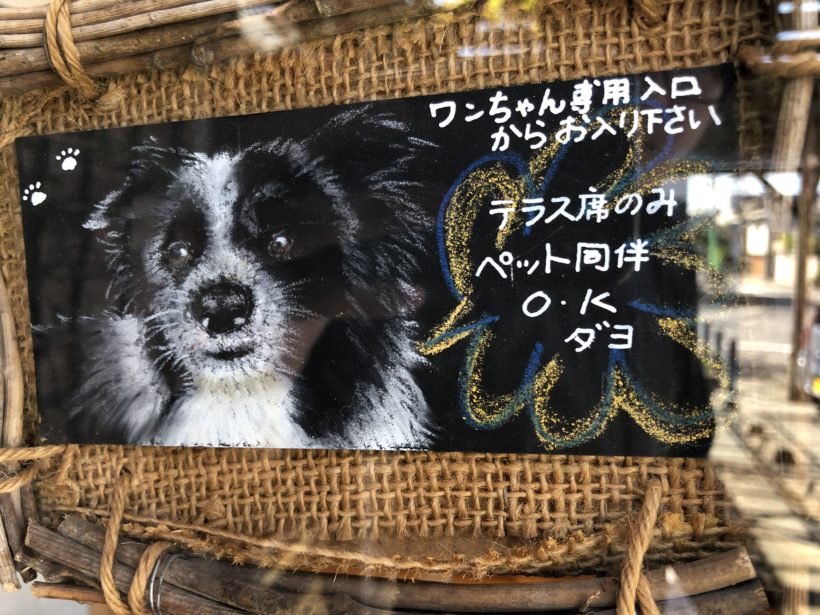 ワンちゃん専用入口
からお入り下さい
テラス席のみ
ペット同伴
O・K
ダヨ